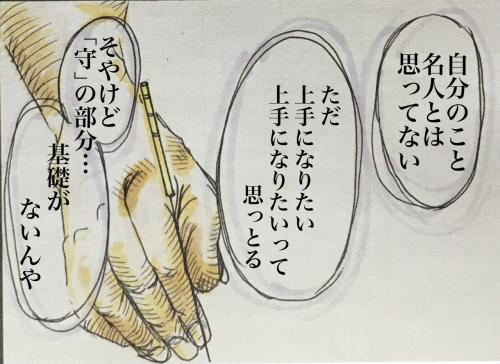 自分のこと
名人とは
思ってない
ただ
上手になりたい
上手になりたいって
思っとる
そやけど
「守」の部分…
基礎が
ないんや